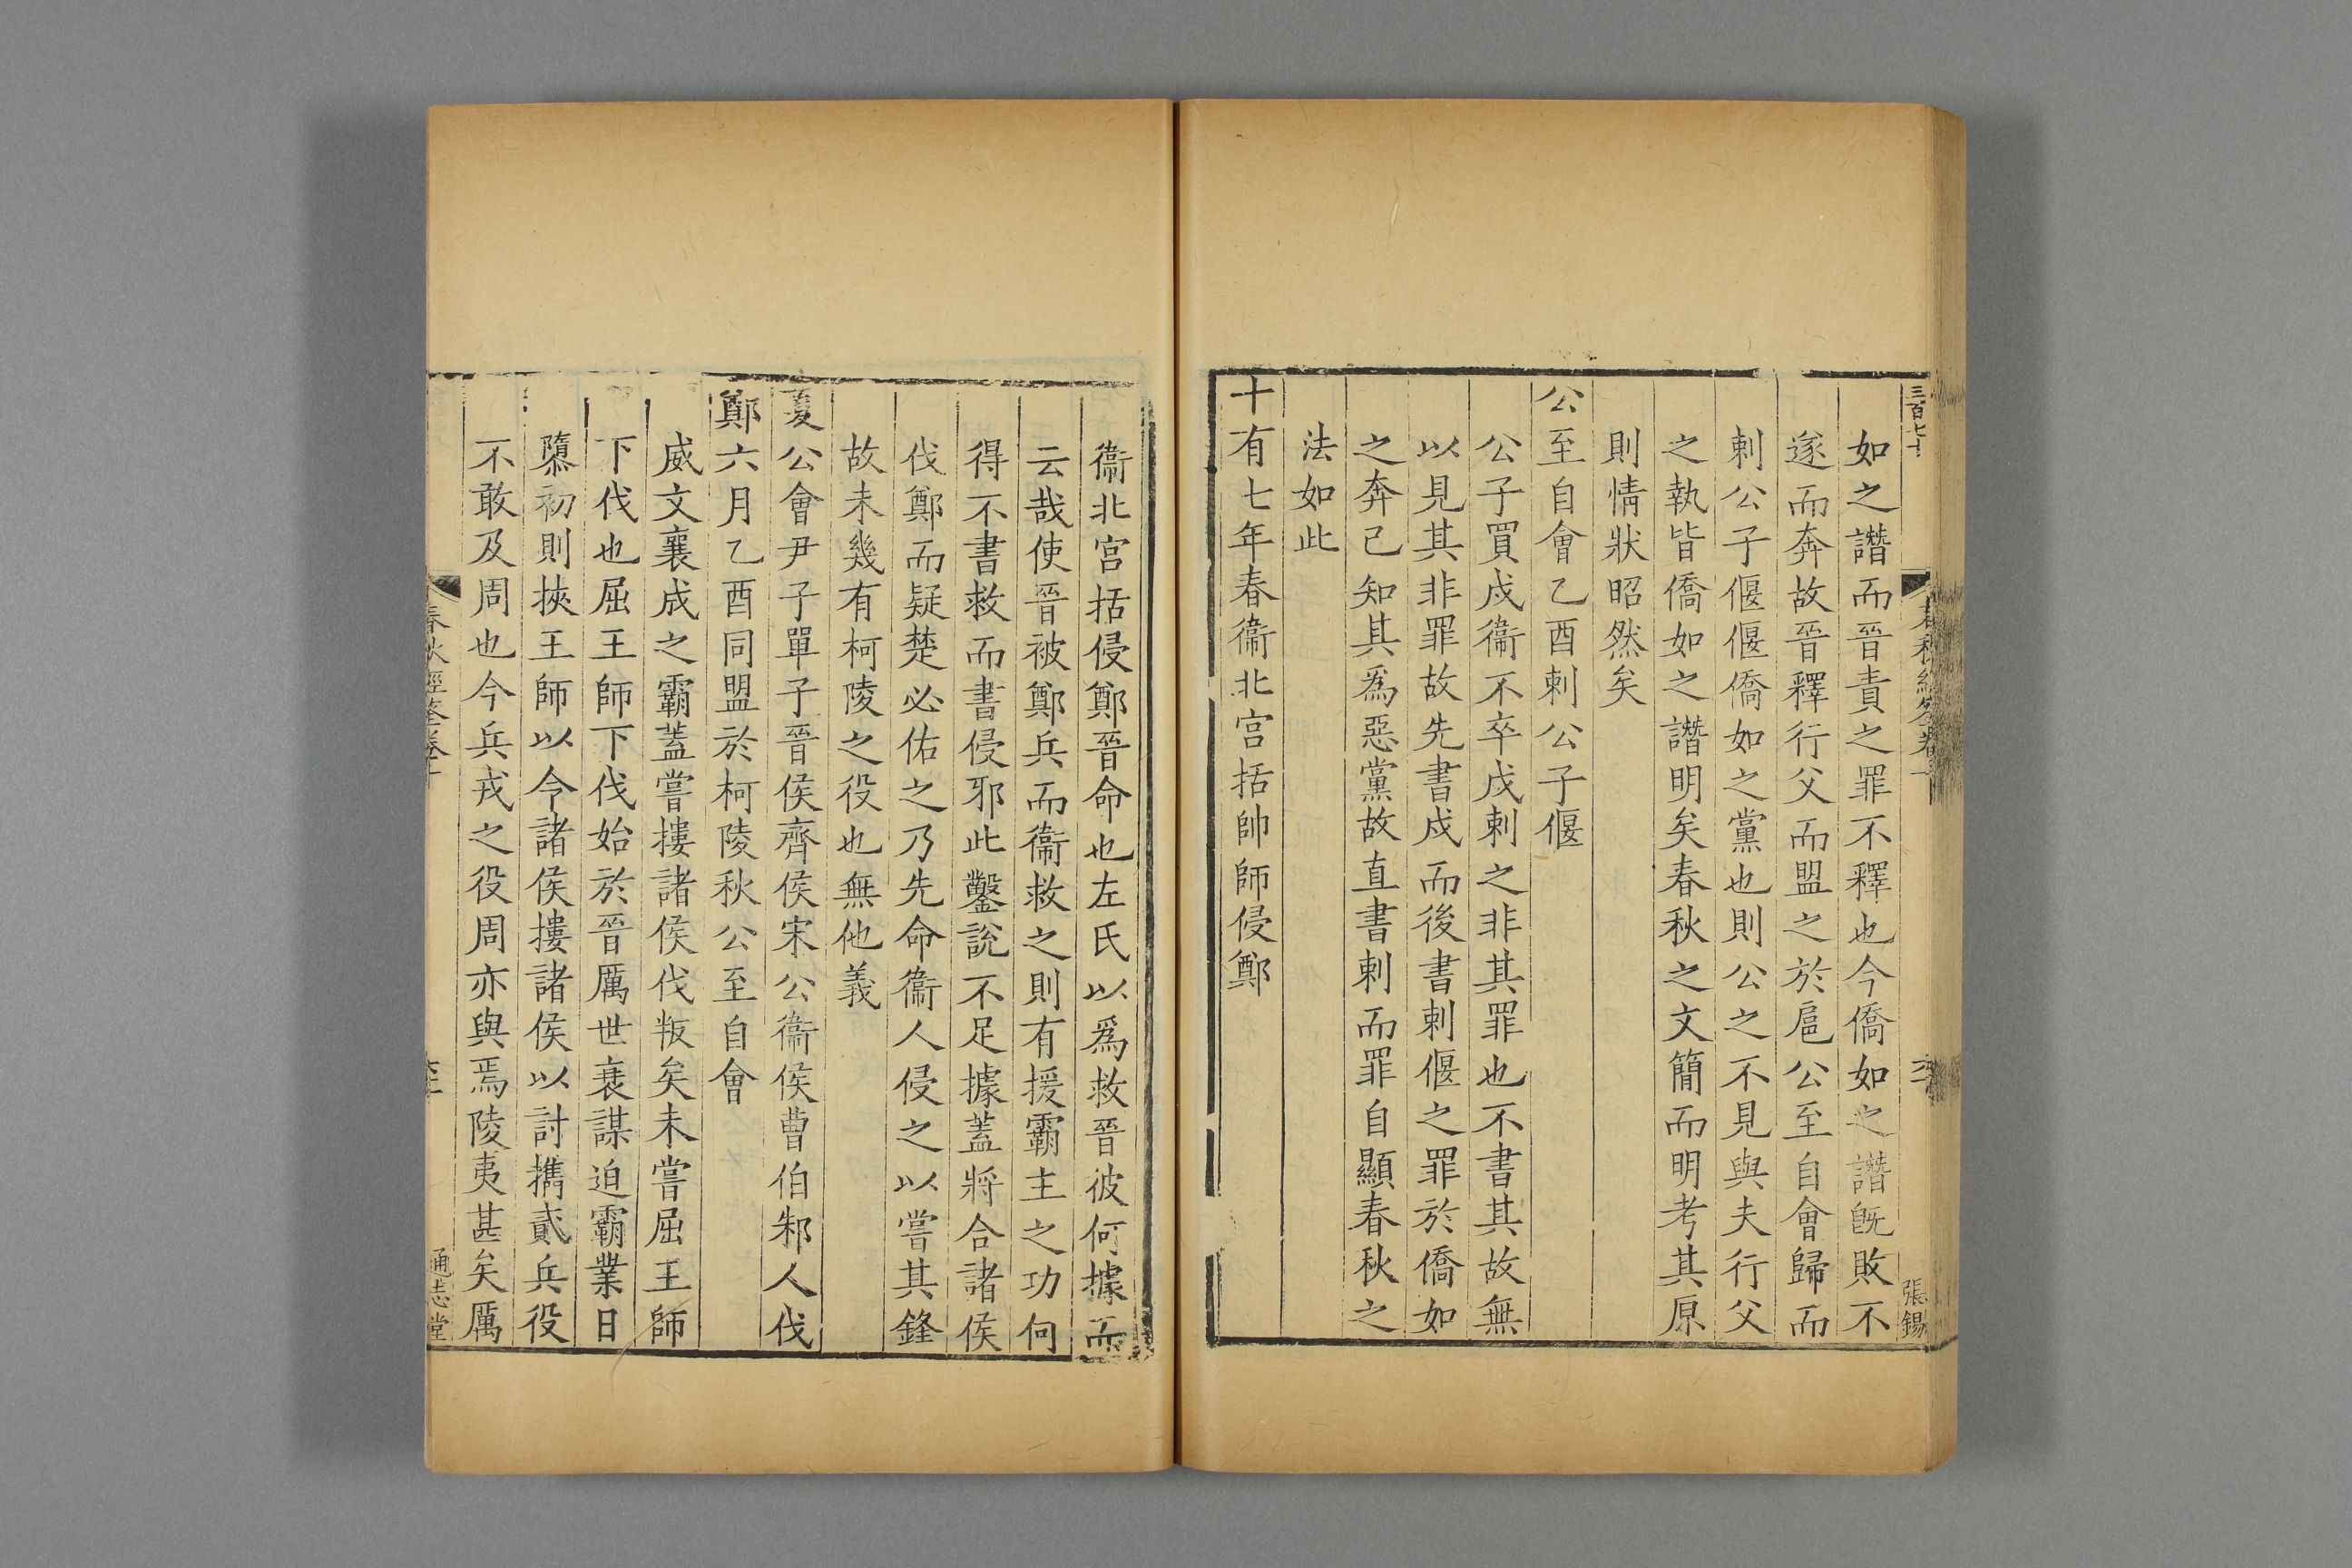 三百七十
張錫
如之譖而晉責之罪不釋也今僑如之譖旣敗不
遂而奔故晉釋行父而盟之於扈公至自會歸而
刺公子偃偃僑如之黨也則公之不見與夫行父
之執皆僑如之譖明矣春秋之文簡而明考其原
則情狀昭然矣
公至自會乙酉刺公子偃
公子買戍衞不卒戍刺之非其罪也不書其故無
以見其非罪故先書戍而後書刺偃之罪於僑如
之奔已知其爲惡黨故直書刺而罪自顯春秋之
法如此
十有七年春衞北宮括帥師侵鄭
衞北宮括侵鄭晉命也左氏以爲救晉彼何據而
云哉使晉被鄭兵而衞救之則有援霸主之功何
得不書救而書侵邪此鑿說不足據蓋將合諸侯
伐鄭而疑楚必佑之乃先命衞人侵之以嘗其鋒
故未幾有柯陵之役也無他義
夏公會尹子單子晉侯齊侯宋公衞侯曹伯邾人伐
鄭六月乙酉同盟於柯陵秋公至自會
威文襄成之霸蓋嘗摟諸侯伐叛矣未嘗屈王師
下伐也屈王師下伐始於晉厲世衰謀迫霸業日
隳初則挾王師以令諸侯摟諸侯以討攜貳兵役
不敢及周也今兵戎之役周亦與焉陵夷甚矣厲
春秋經筌卷十
通志堂